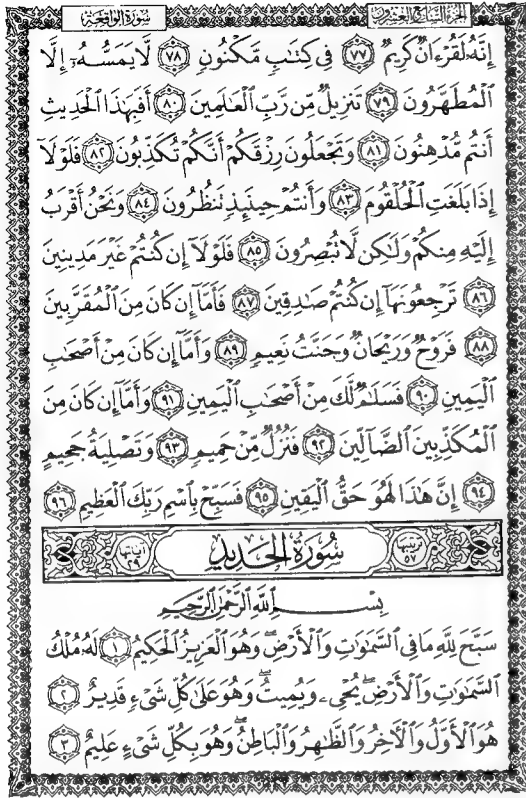 الجزء السابع والعشرون
سورة الواقعة
إِنَّهُۥ لَقُرْءَانٌ كَرِيمٌ ٧٧ فِى كِتَٰبٍ مَّكْنُونٍ ٧٨ لَّا يَمَسُّهُۥٓ إِلَّا
ٱلْمُطَهَّرُونَ ٧٩ تَنزِيلٌ مِّن رَّبِّ ٱلْعَٰلَمِينَ ٨٠ أَفَبِهَٰذَا ٱلْحَدِيثِ
أَنتُم مُّدْهِنُونَ ٨١ وَتَجْعَلُونَ رِزْقَكُمْ أَنَّكُمْ تُكَذِّبُونَ ٨٢ فَلَوْلَآ
إِذَا بَلَغَتِ ٱلْحُلْقُومَ ٨٣ وَأَنتُمْ حِينَئِذٍ تَنظُرُونَ ٨٤ وَنَحْنُ أَقْرَبُ
إِلَيْهِ مِنكُمْ وَلَٰكِن لَّا تُبْصِرُونَ ٨٥ فَلَوْلَآ إِن كُنتُمْ غَيْرَ مَدِينِينَ
٨٦ تَرْجِعُونَهَآ إِن كُنتُمْ صَٰدِقِينَ ٨٧ فَأَمَّآ إِن كَانَ مِنَ ٱلْمُقَرَّبِينَ
٨٨ فَرَوْحٌ وَرَيْحَانٌ وَجَنَّتُ نَعِيمٍ ٨٩ وَأَمَّآ إِن كَانَ مِنْ أَصْحَٰبِ
ٱلْيَمِينِ ٩٠ فَسَلَٰمٌ لَّكَ مِنْ أَصْحَٰبِ ٱلْيَمِينِ ٩١ وَأَمَّآ إِن كَانَ مِنَ
ٱلْمُكَذِّبِينَ ٱلضَّآلِّينَ ٩٢ فَنُزُلٌ مِّنْ حَمِيمٍ ٩٣ وَتَصْلِيَةُ جَحِيمٍ
٩٤ إِنَّ هَٰذَا لَهُوَ حَقُّ ٱلْيَقِينِ ٩٥ فَسَبِّحْ بِٱسْمِ رَبِّكَ ٱلْعَظِيمِ ٩٦
ترتيبها ٥٧ سورة الحديد آياتها ٢٩
بِسْمِ ٱللَّهِ ٱلرَّحْمَٰنِ ٱلرَّحِيمِ
سَبَّحَ لِلَّهِ مَا فِى ٱلسَّمَٰوَٰتِ وَٱلْأَرْضِ ۖ وَهُوَ ٱلْعَزِيزُ ٱلْحَكِيمُ ١ لَهُۥ مُلْكُ
ٱلسَّمَٰوَٰتِ وَٱلْأَرْضِ ۖ يُحْىِۦ وَيُمِيتُ ۖ وَهُوَ عَلَىٰ كُلِّ شَىْءٍ قَدِيرٌ ٢
هُوَ ٱلْأَوَّلُ وَٱلْءَاخِرُ وَٱلظَّٰهِرُ وَٱلْبَاطِنُ ۖ وَهُوَ بِكُلِّ شَىْءٍ عَلِيمٌ ٣